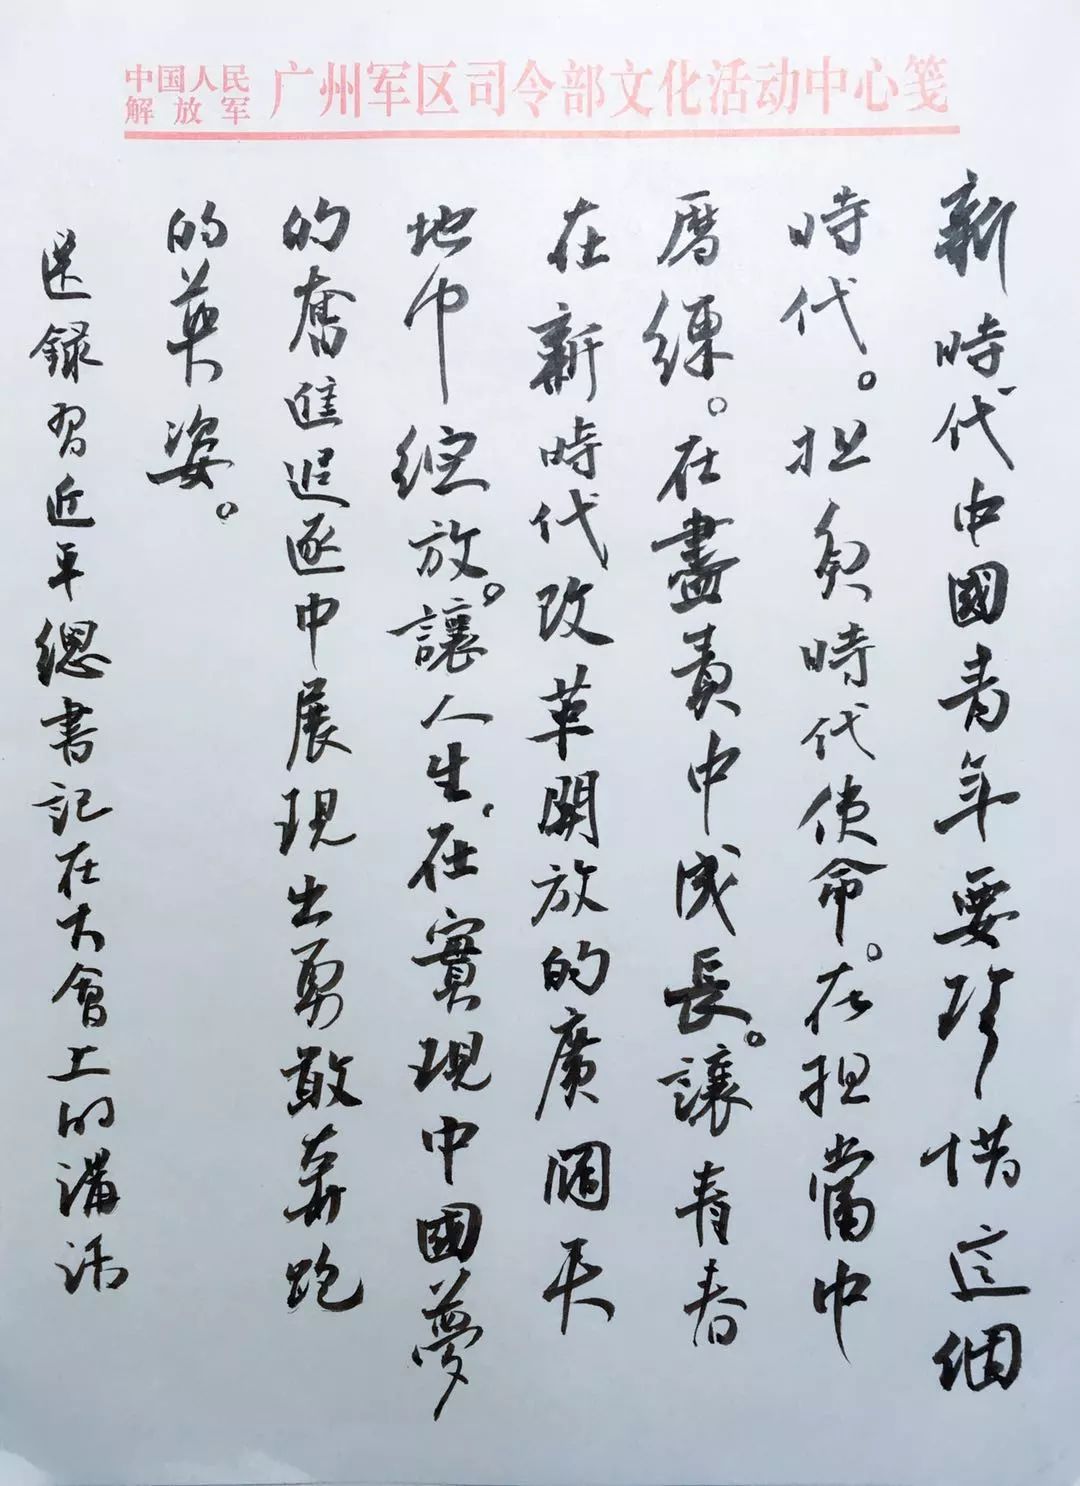 中国人民解放军 广州军区司令部文化活动中心笺
新時代中國青年要珍惜這個
時代。担負時代使命。在担當中
歷練。在盡責中成長。讓青春
在新時代改革開放的廣闊天
地中綻放。讓人生，在實現中國夢
的奮進追逐中展現出勇敢奔跑
的英姿。
選録習近平總書記在大會上的講話